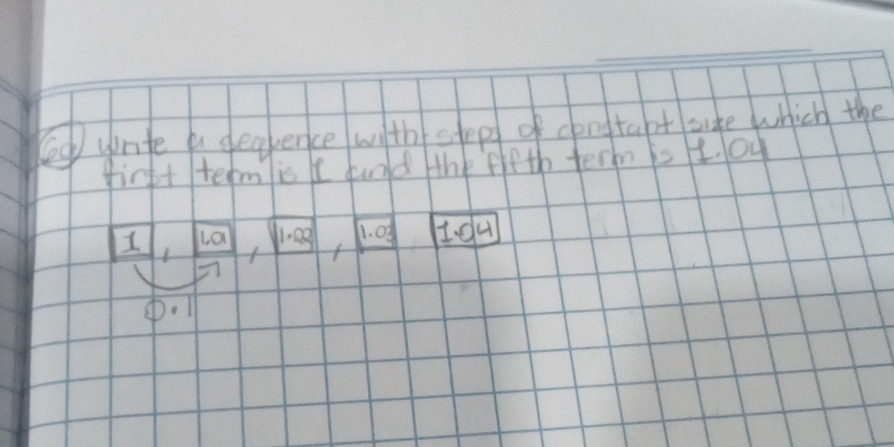 6a) Write a sequence with steps of constant size which the
first term is 1 and the fifth term is 1.04
1 , 1.01 , 1.02 , 1.03 1.04
0.1